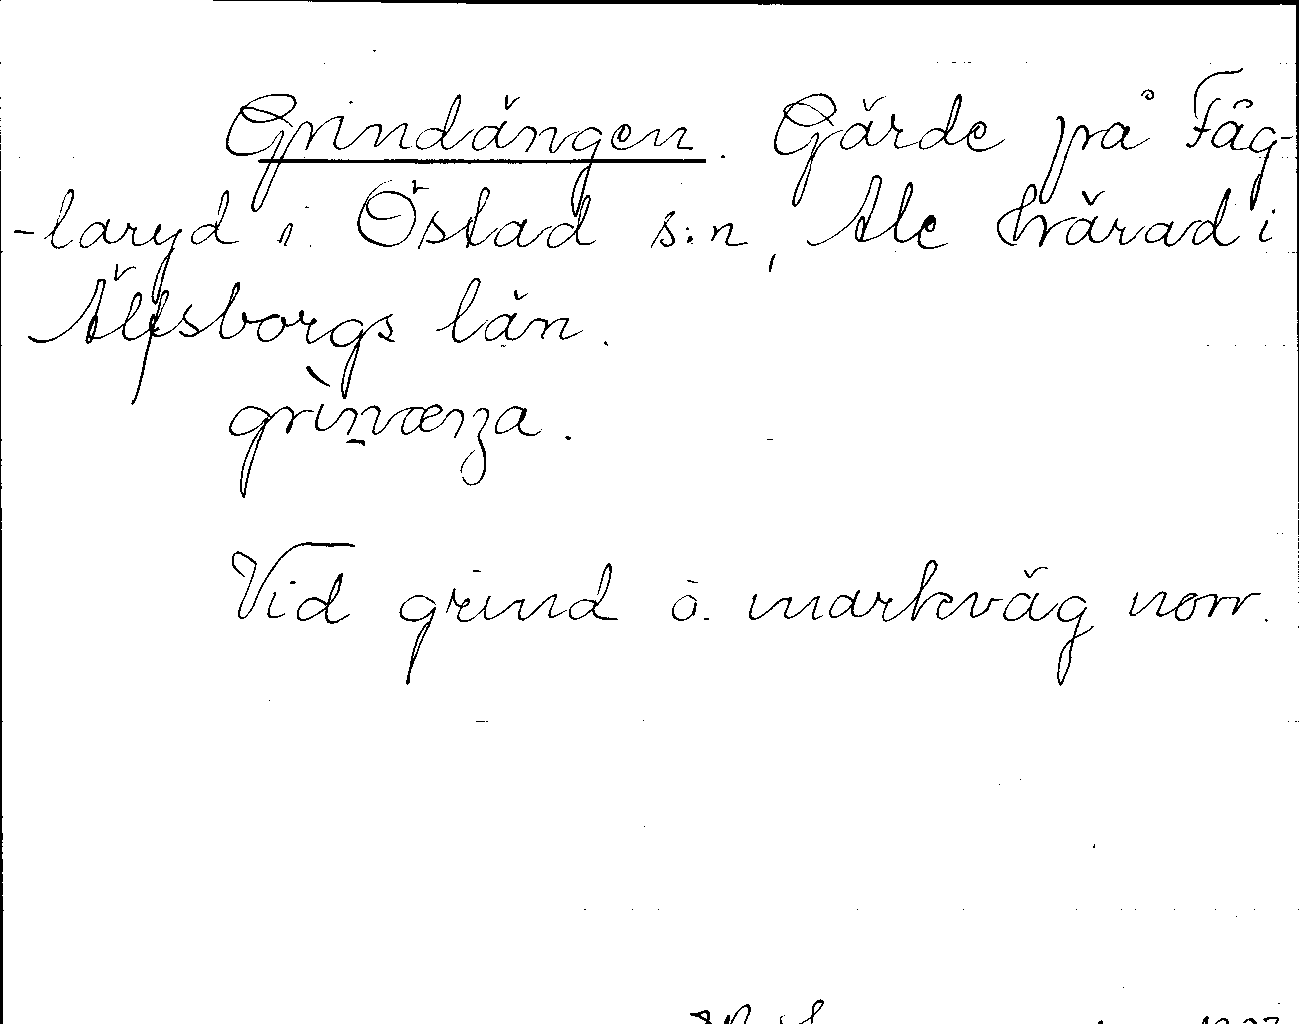 Grindängen. Gärde på Fåg-
-laryd i Östad s:n, Ale härad i
Älfsborgs län.
grìnvænza.
Vid grind å markväg norr.